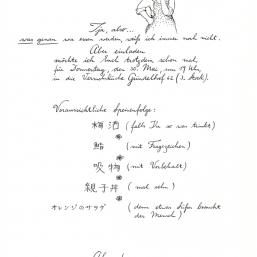 Tja, also...
was genau wir essen werden, weiß ich immer noch nicht.
Aber einladen
möchte ich Euch trotzdem schon mal,
für Donnerstag, den 30. Mai, um 19 Uhr,
in die
Voraussichtliche Speisenfolge:
梅酒 (falls Ihr so was trinkt)
鮨 (mit Fragezeichen)
吸物 (mit Vorbehalt)
親子丼 (mal sehn)
オレンジのサラダ (denn etwas Süßes braucht
der Mensch)